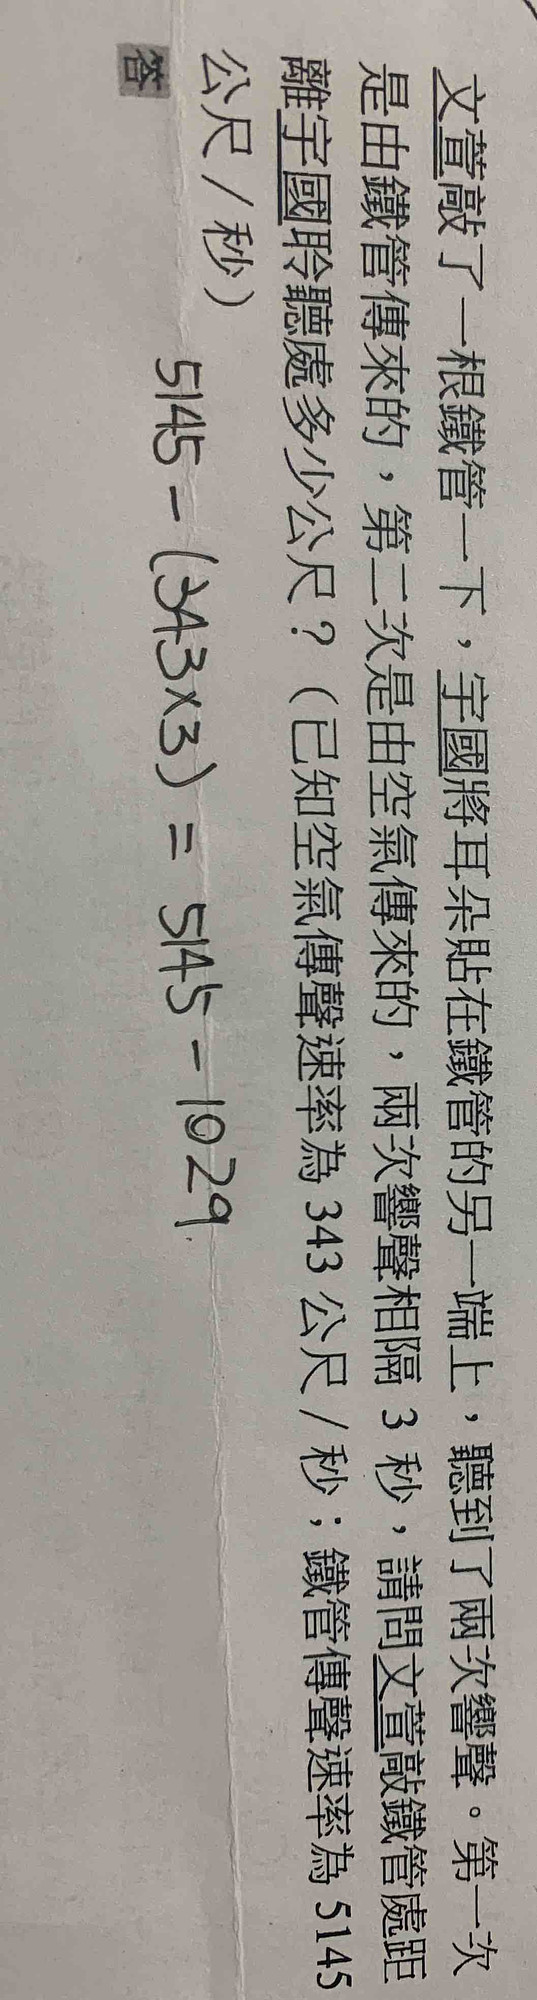 文萱敲了一根鐵管一下，宇國將耳朵貼在鐵管的另一端上，聽到了兩次響聲。第一次
是由鐵管傳來的，第二次是由空氣傳來的，兩次響聲相隔 3 秒，請問文萱敲鐵管處距
離宇國聆聽處多少公尺？（已知空氣傳聲速率為 343 公尺／秒；鐵管傳聲速率為 5145
公尺／秒）
答
5145－(343×3) = 5145－1029